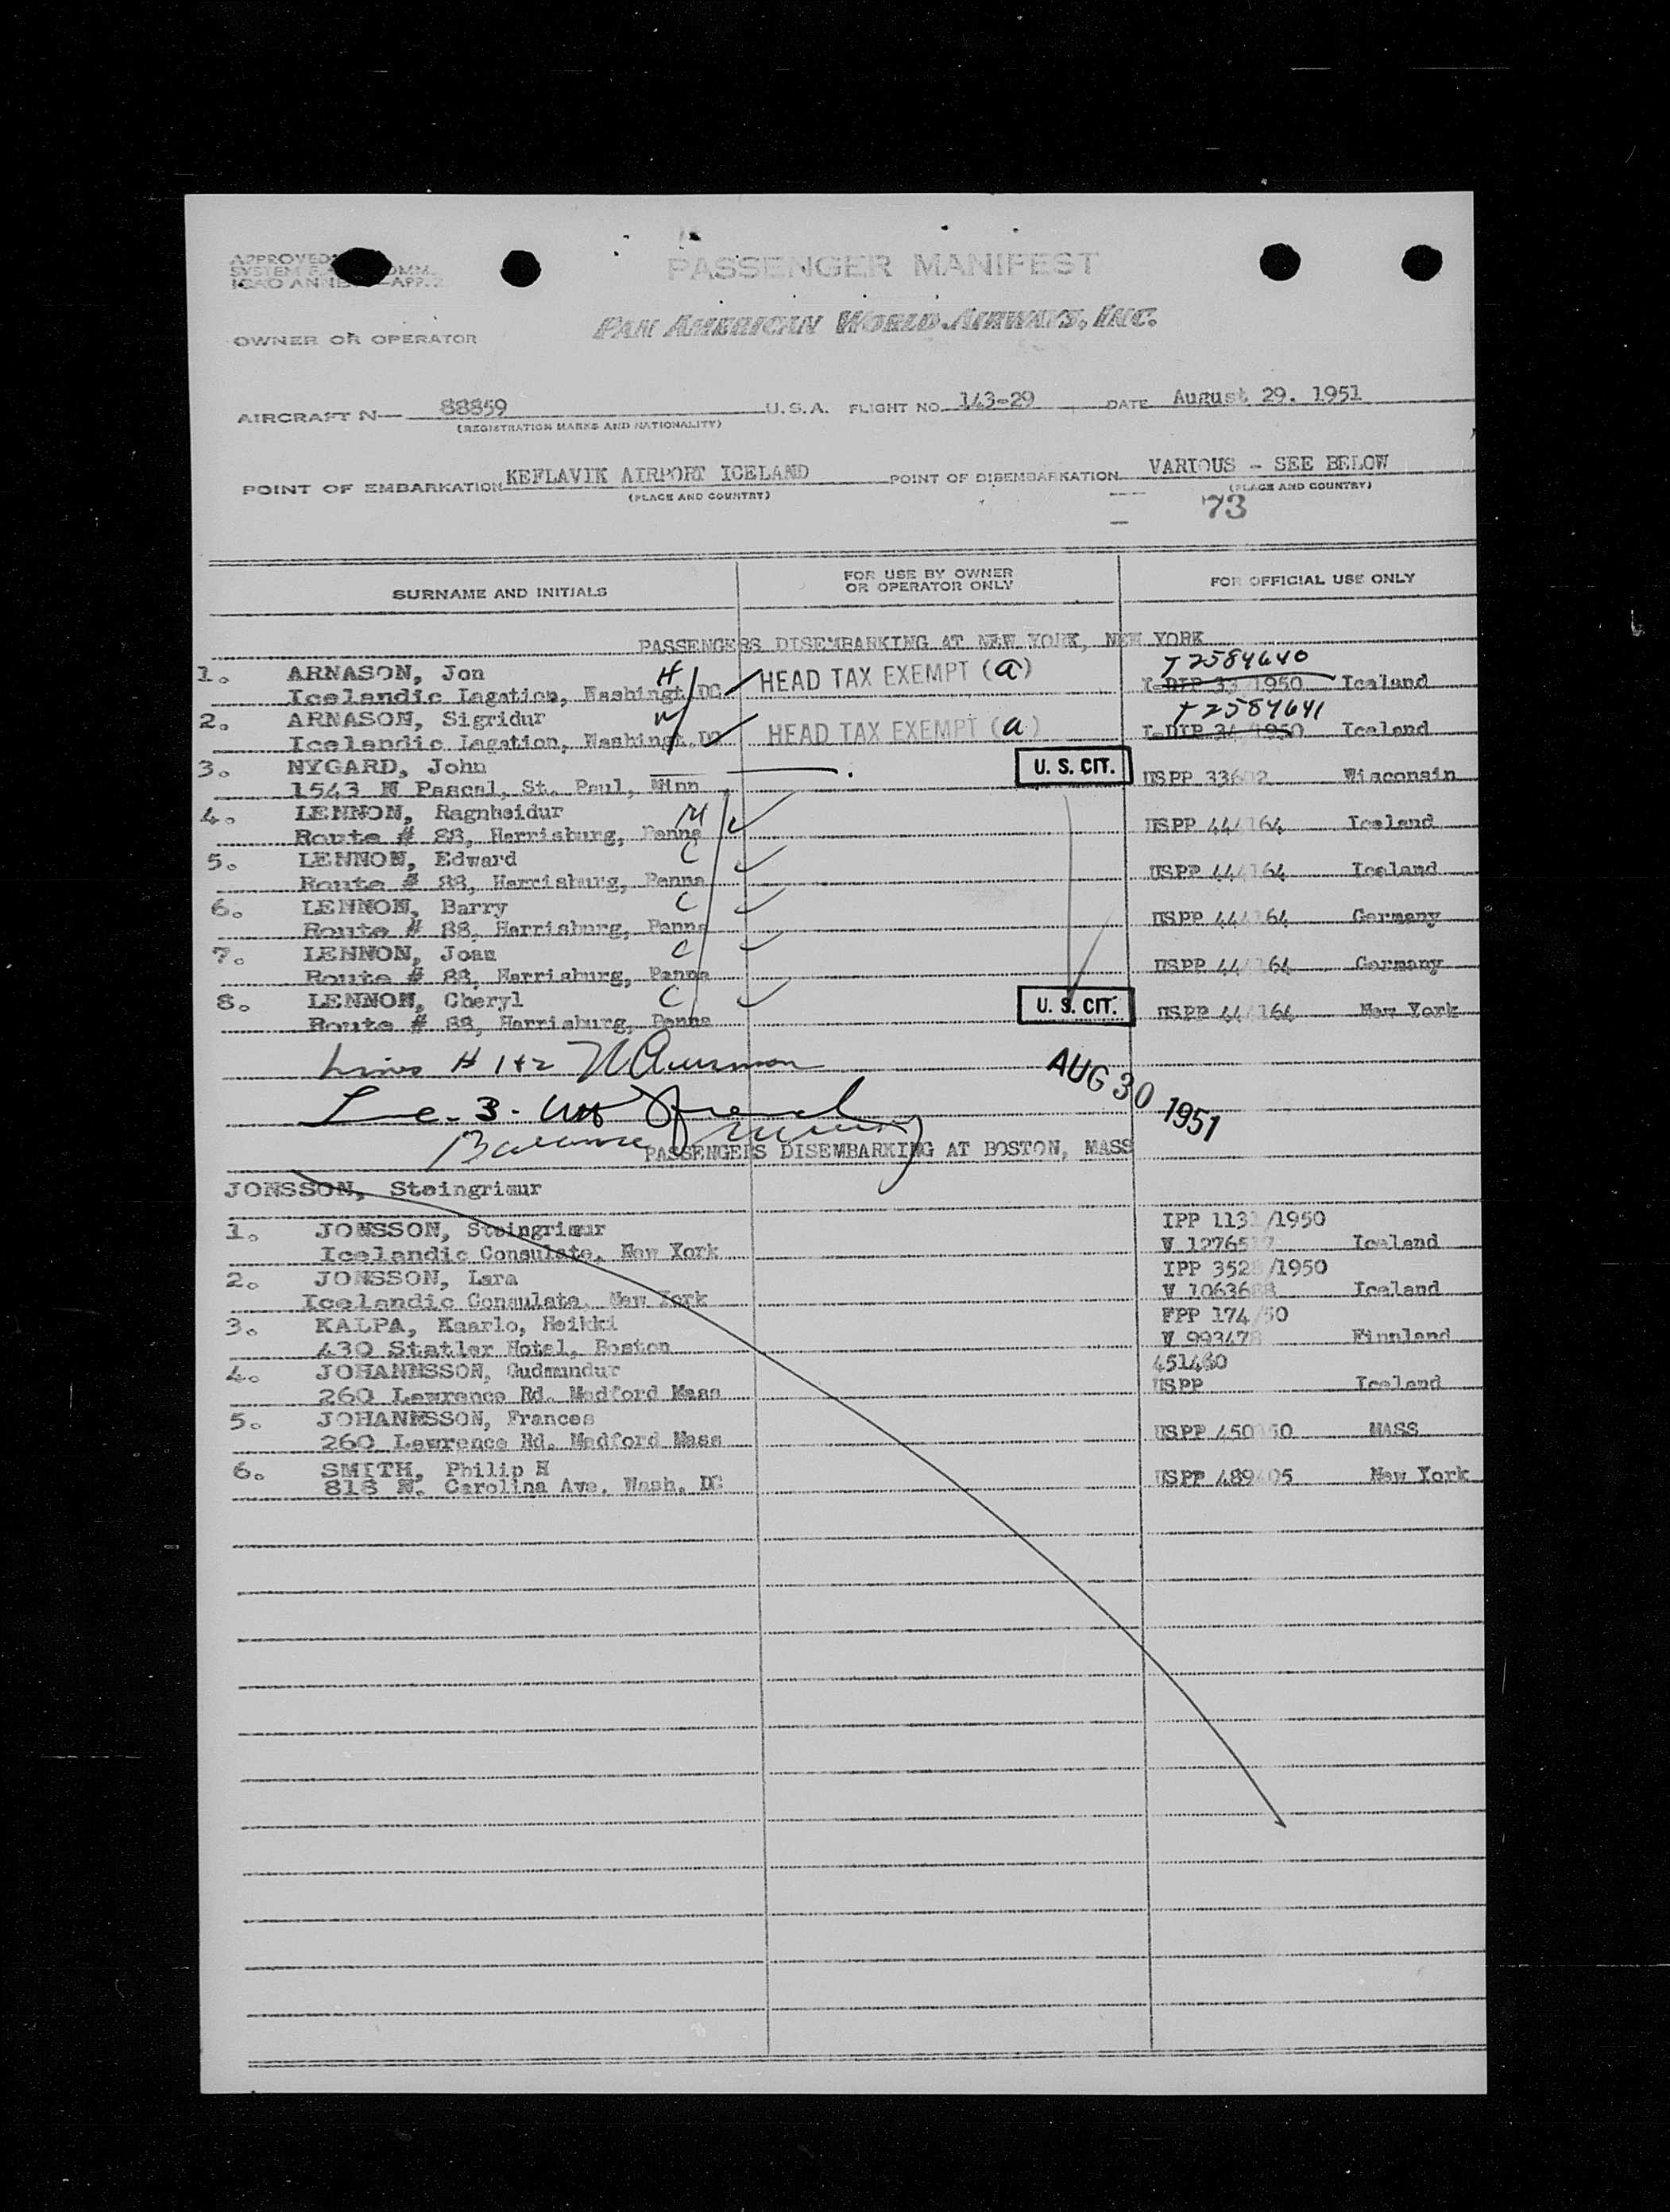 PASSENGER MANIFEST
PAN AMERICAN WORLD AIRWAYS, INC.
OWNER OR OPERATOR
AIRCRAFT N— 88859 U.S.A. FLIGHT NO. 143-29 DATE August 29. 1951
(REGISTRATION MARKS AND NATIONALITY)
POINT OF EMBARKATION KEFLAVIK AIRPORT ICELAND POINT OF DISEMBARKATION VARIOUS - SEE BELOW
(PLACE AND COUNTRY) (PLACE AND COUNTRY)
73
SURNAME AND INITIALS FOR USE BY OWNER OR OPERATOR ONLY FOR OFFICIAL USE ONLY
PASSENGERS DISEMBARKING AT NEW YORK, NEW YORK
1. ARNASON, Jon H HEAD TAX EXEMPT (a) T2584640
Icelandic Lagation, Washingt. DC I-DIP 33/1950 Iceland
2. ARNASON, Sigridur W HEAD TAX EXEMPT (a) T2584641
Icelandic Lagation, Washingt. DC I-DIP 34/1950 Iceland
3. NYGARD, John U. S. CIT.
1543 N Pascal, St. Paul, Minn USPP Wisconsin
4. LENNON, Ragnheidur M
Route # 88, Harrisburg, Penna USPP Iceland
5. LENNON, Edward C
Route # 88, Harrisburg, Penna USPP Iceland
6. LENNON, Barry C
Route # 88, Harrisburg, Penna USPP Germany
7. LENNON, Joan C
Route # 88, Harrisburg, Penna USPP Germany
8. LENNON, Cheryl C U. S. CIT.
Route # 88, Harrisburg, Penna USPP New York
Lines # 1+2
AUG 30 1951
PASSENGERS DISEMBARKING AT BOSTON, MASS
JONSSON, Steingrimur
1. JONSSON, Steingrimur IPP /1950
Icelandic Consulate, New York V Iceland
2. JONSSON, Lara IPP /1950
Icelandic Consulate, New York V Iceland
3. KALPA, Kaarlo, Heikki FPP 174/50
430 Statler Hotel, Boston V Finnland
4. JOHANNSSON, Gudmundur 451460
260 Lawrence Rd. Medford Mass USPP Iceland
5. JOHANNSSON, Frances
260 Lawrence Rd. Medford Mass USPP MASS
6. SMITH, Philip H
818 N. Carolina Ave. Wash. DC USPP New York